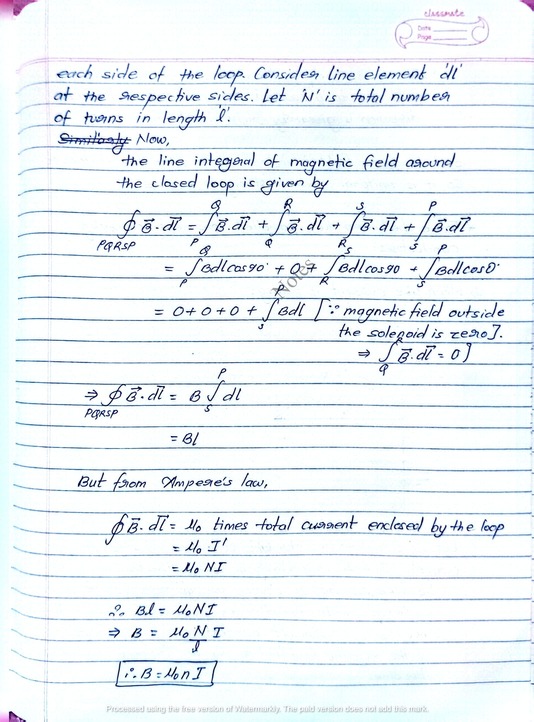 classmate
Date
Page
each side of the loop. Consider line element 'dl'
at the respective sides. Let 'N' is total number
of turns in length 'l'.
Similarly Now,
the line integral of magnetic field around
the closed loop is given by
∮PQRSP B⃗.dl⃗ = ∫P^Q B⃗.dl⃗ + ∫Q^R B⃗.dl⃗ + ∫R^S B⃗.dl⃗ + ∫S^P B⃗.dl⃗
= ∫P^Q Bdlcos90° + 0 + ∫R^S Bdlcos90 + ∫S^P Bdlcos0°
Notes
= 0+0+0 + ∫S^P Bdl [∵ magnetic field outside
the solenoid is zero].
⇒ ∫Q^R B⃗.dl⃗ = 0]
⇒ ∮PQRSP B⃗.dl⃗ = B ∫S^P dl
= Bl
But from Ampere's law,
∮B⃗.dl⃗ = μ₀ times total current enclosed by the loop
= μ₀ I'
= μ₀ NI
∴ Bl = μ₀NI
⇒ B = μ₀ N/l I
∴ B = μ₀nI
Processed using the free version of Watermarkly. The paid version does not add this mark.